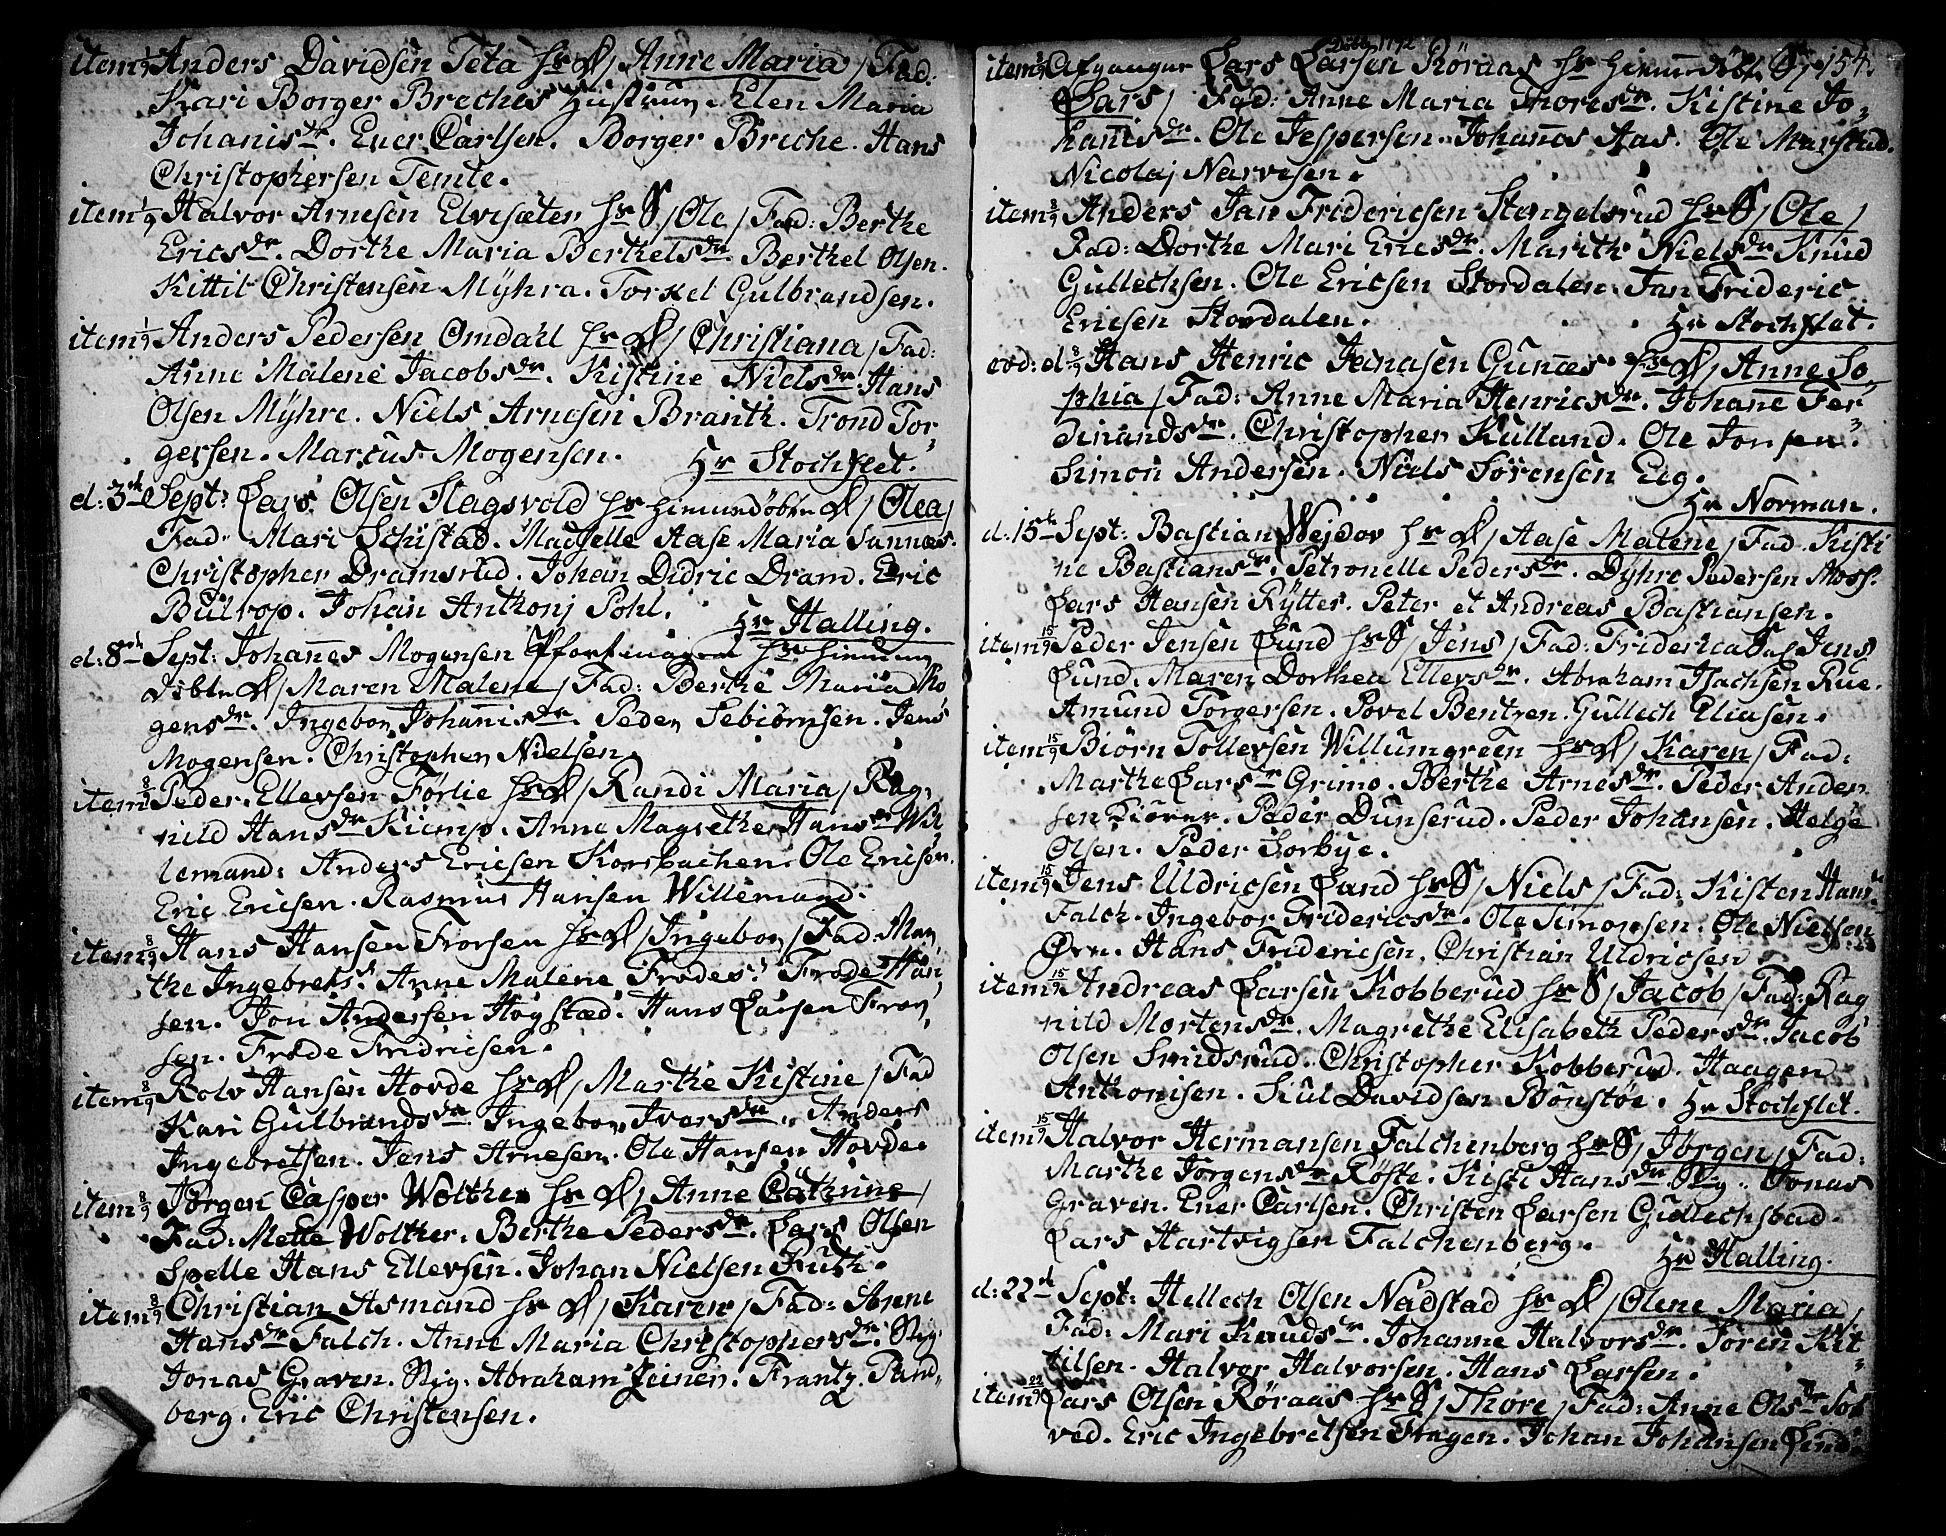 item 1/9 Anders Davidsen Teta hr D /Anne Maria/ Fad:
Kari Borger Breches Hustrue. Elen Maria
Johanisdr. Ener Carlsen. Borger Breche. Hans
Christophersen Temte.
item 1/9 Halvor Arnesen Elvisæter hr S /Ole/ Fad: Berthe
Ericsdr. Dorthe Maria Berthelsdr. Berthel Olsen.
Kittil Christensen Mÿhra. Torkel Gulbrandsen.
item 1/9 Anders Pedersen Omdahl hr D /Christiana/ Fad:
Anne Malene Jacobsdr. Kistine Nielsdr. Hans
Olsen Mÿhre. Niels Arnesen Branth. Trond Tor-
gersen. Marcus Mogensen. Hr Stochflet.
d: 3de Sept: Lars Olsen Hagsvold hr hiemmedøbte D /Olea/
Fad: Mari Schistad. Madselle Aase Maria Sannæs.
Christopher Dramsrud. Johan Didric Dram. Eric
Bultrop. Johan Anthonj Pohl. Hr Halling.
d: 8de Sept: Johañes Mogensen hr hiemme
døbte D /Maren Malene/ Fad: Berthe Maria Mo
gensdr. Ingebor Johañisdr. Peder Sebiørnsen. Jens
Mogensen. Christopher Nielsen.
item 8/9 Peder Ellevsen Førlie hr D /Randi Maria/ Rag-
nild Hansdr Kiemp. Anne Magrethe Hansdr Wil
lemand: Anders Ericsen Korsbachen. Ole Ericsen.
Eric Ericsen. Rasmus Hansen Willemand.
item 8/9 Hans Hansen Frorsen hr D /Ingebor/ Fad: Mar
the Ingebrets. Anne Malene Frodes. Frode Han
sen. Jon Andersen Høgstæd. Hans Larsen Fron
sen. Frode Fridricsen.
item 8/9 Rolv Hansen Hovde hr D /Marthe Kistine/ Fad
Kari Gulbrandsdr. Ingebor Ivarsdr. Anders
Ingebretsen. Jens Arnesen. Ole Hansen Hovde.
item 8/9 Jørgen Casper Wolther hr D /Anne Cathrine/
Fad: Mette Wolther. Berthe Pedersdr. Lars Olsen
Spelle Hans Ellevsen. Johan Nielsen Ruth.
item 8/9 Christian Asmand hr D /Karen/ Fad: Anne
Hansdr Falch. Anne Maria Christophersdr. Stig:
Jonas Graven. Stig: Abraham Heinen. Frantz Pand-
berg. Eric Christensen.
1792
item 8/9 Afgangne Lars Larsen Röraas hr hiemmedøbt S 154.
/Lars/ Fad: Anne Maria Thoresdr. Kistine Jo-
hanisdr. Ole Jespersen. Johañes Aas. Ole Marstad.
Nicolaj Narvesen.
item 8/9 Anders Jan Fridericsen Stengelsrud hr S /Ole/
Fad: Dorthe Mari Ericsdr. Marith Nielsdr Knud
Gullechsen. Ole Ericsen Stordalen. Jan Frideric
Ericsen Stordalen. Hr Stochflet.
eod: d: 8/9 Hans Henric Jonasen Guñæs hr D /Anne So
phia/ Fad: Anne Maria Henricsdr. Johañe Fer
dinandsdr. Christopher Kulland. Ole Jonsen.
Simon Andersen. Niels Sørensen Eeg.
Hr Norman.
d: 15de Sept: Bastian Wejdov hr D /Aase Malene/ Fad. Kisti
ne Bastiansdr. Petronelle Pedersdr. Dÿhre Pedersen Moss.
Lars Hansen Rÿtter. Peter et Andreas Bastiansen.
item 15/9 Peder Jensen Lund hr S /Jens/ Fad: Friderica Jens
Lund. Maren Dorthea Ellevsdr. Abraham Hachsen Rue.
Amund Torgersen. Povel Bentzen. Gullech Eliasen.
item 15/9 Biørn Tollevsen Willumgreen hr D /Karen/ Fad:
Marthe Larsdr Grimo. Berthe Arnesdr. PederAnder
sen Kiørner. Peder Dunserud. Peder Johansen. Helge
Olsen. Peder Sorbye.
item 15/9 Jens Uldricsen Land hr S /Niels/ Fad: Kisten Hansdr
Falch. Ingebor Fridericsdr. Ole Simonsen. Ole Nielsen
Ørn. Hans Fridericsen. Christian Uldricsen
item 15/9 Andreas Larsen Kobberud hr S /Jacob/ Fad: Rag
nild Mortensdr. Magrethe Elisabeth Pedersdr. Jacob
Olsen Smidsrud. Christopher Kobberud. Haagen
Anthonisen. Kul Davidsen Bonstøe. Hr Stochflet.
item 15/9 Halvor Hermansen Falchenberg hr S /Jørgen/ Fad:
Marthe Jørgensdr Røste. Kisti Hansdr. Stig: Jonas
Graven. Ener Carlsen. Christen Larsen Gullechstad.
Lars Hartvigsen Falchenberg. Hr Halling.
d: 22de Sept: Hellech Olsen Nadstad hr D /Olene Maria/
Fad: Mari Knudsdr. Johanne Halvorsdr. Soren Kit
tilsen. Halvor Halvorsen. Hans Larsen.
item 22/9 Lars Olsen Röraas hr S /Thore/ Fad: Anne Olsdr Sol
ved. Eric Ingebretsen Fragen. Johan Johansen Lind